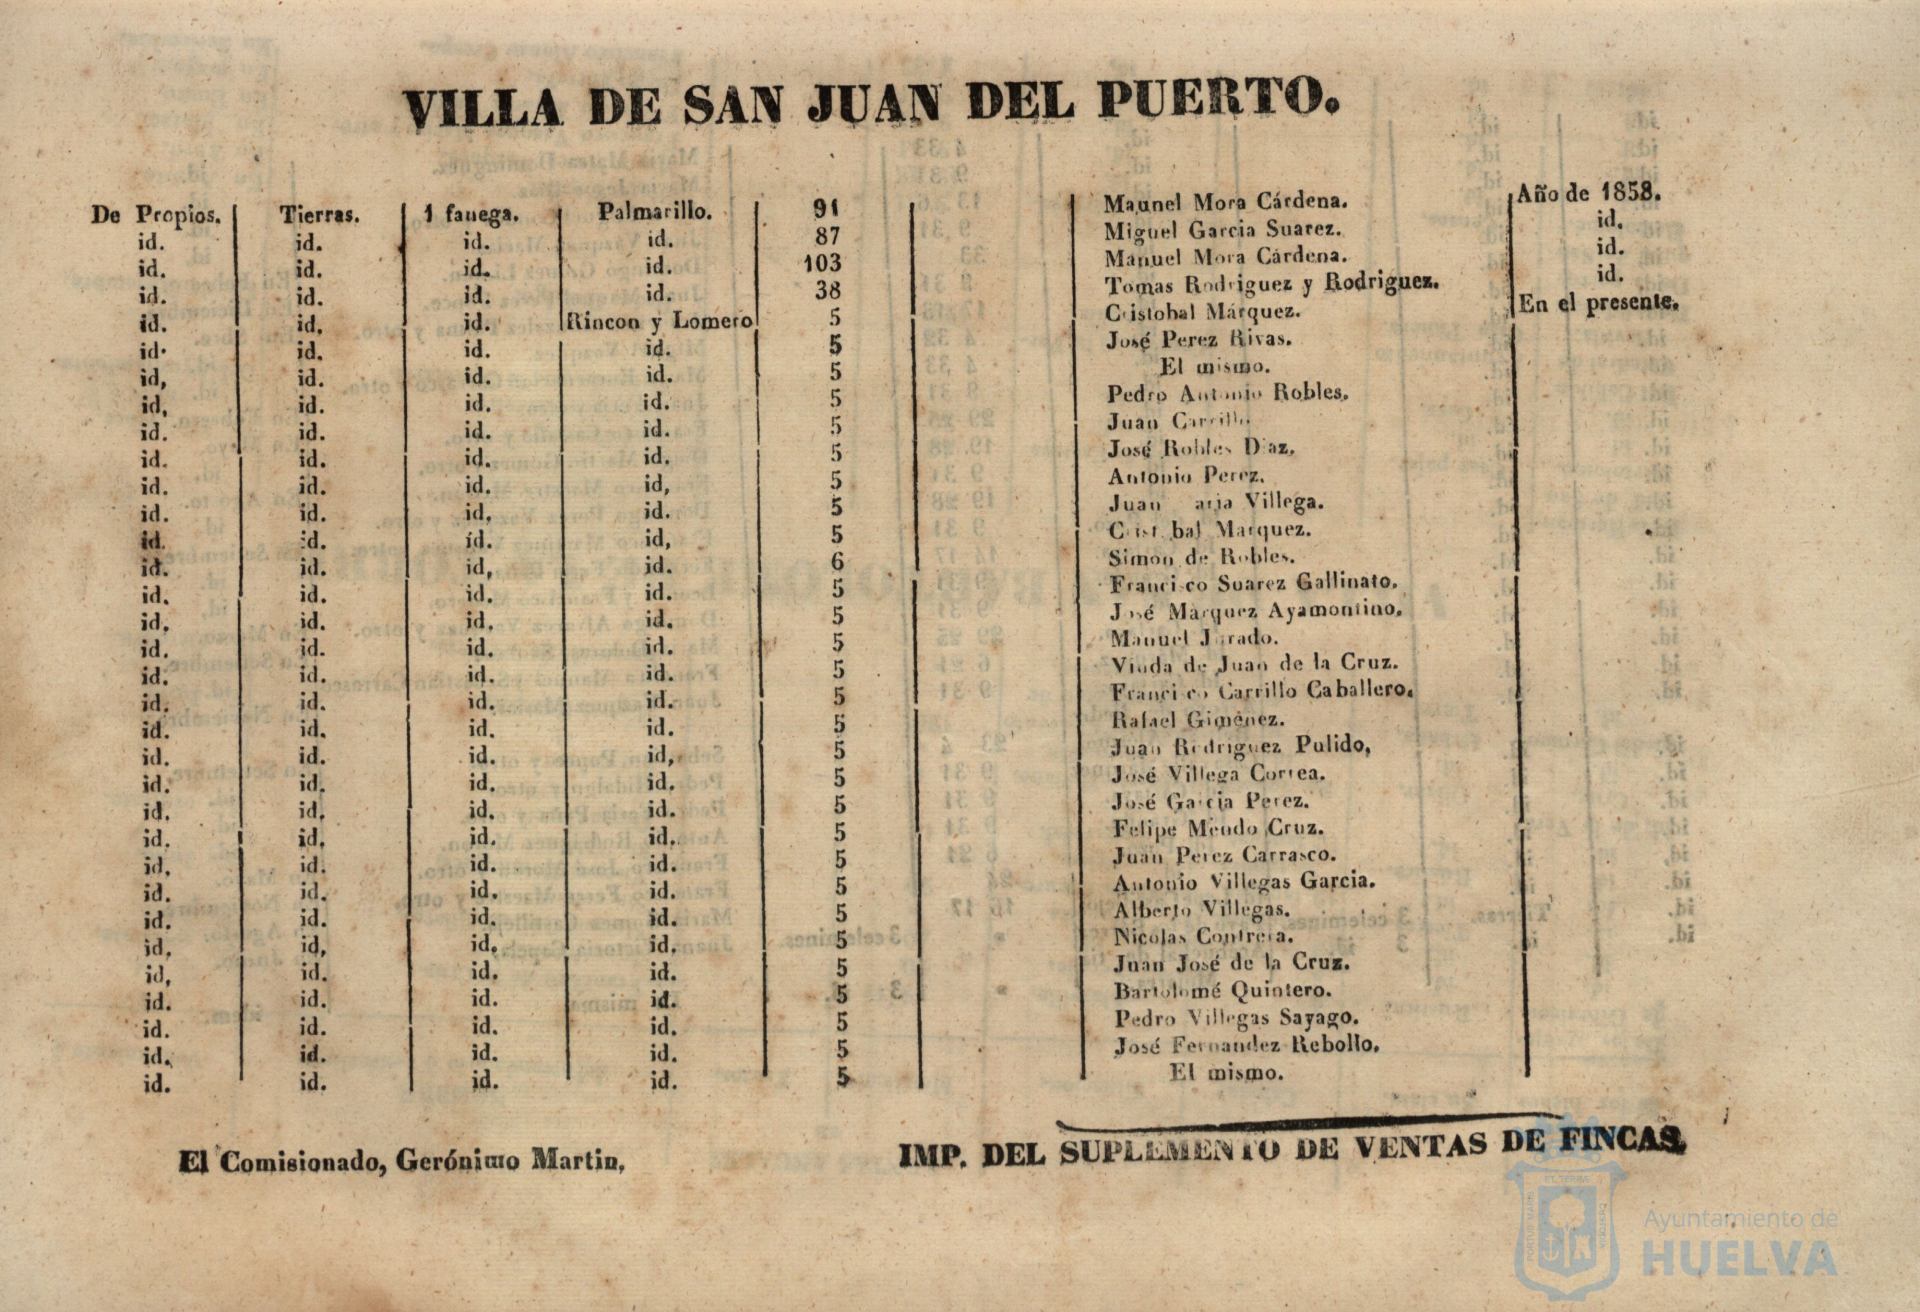 VILLA DE SAN JUAN DEL PUERTO.
De Propios. Tierras. 1 fanega. Palmarillo. 91 Maunel Mora Cárdena. Año de 1858.
id. id. id. id. 87 Miguel Garcia Suarez. id.
id. id. id. id. 103 Manuel Mora Cárdena. id.
id. id. id. id. 38 Tomas Rodriguez y Rodriguez. id.
id. id. id. Rincon y Lomero 5 Cristobal Márquez. En el presente.
id. id. id. id. 5 José Perez Rivas.
id, id. id. id. 5 El mismo.
id, id. id. id. 5 Pedro Antonio Robles.
id. id. id. id. 5 Juan Carrillo
id. id. id. id. 5 José Robles Diaz.
id. id. id. id, 5 Antonio Perez.
id. id. id, id. 5 Juan aria Villega.
id. id. id. id, 5 Crist bal Marquez.
id. id. id, id. 6 Simon de Robles.
id. id. id. id. 5 Franci co Suarez Gallinato.
id. id. id. id. 5 José Marquez Ayamontino.
id. id. id. id. 5 Manuel Jurado.
id. id. id. id. 5 Viuda de Juan de la Cruz.
id. id. id. id. 5 Franci co Carrillo Caballero.
id. id. id. id. 5 Rafael Giménez.
id. id. id. id, 5 Juan Rodriguez Pulido,
id. id. id. id. 5 José Villega Correa.
id. id. id. id. 5 José Garcia Perez.
id. id. id. id. 5 Felipe Mendo Cruz.
id. id. id. id. 5 Juan Perez Carrasco.
id. id. id. id. 5 Antonio Villegas Garcia.
id. id. id. id. 5 Alberto Villegas.
id. id, id. id. 5 Nicolas Contrera.
id, id. id. id. 5 Juan José de la Cruz.
id. id. id. id. 5 Bartolomé Quintero.
id. id. id. id. 5 Pedro Villegas Sayago.
id. id. id. id. 5 José Fernandez Rebollo.
id. id. id. id. 5 El mismo.
El Comisionado, Gerónimo Martin. IMP. DEL SUPLEMENTO DE VENTAS DE FINCAS.
Ayuntamiento de
HUELVA